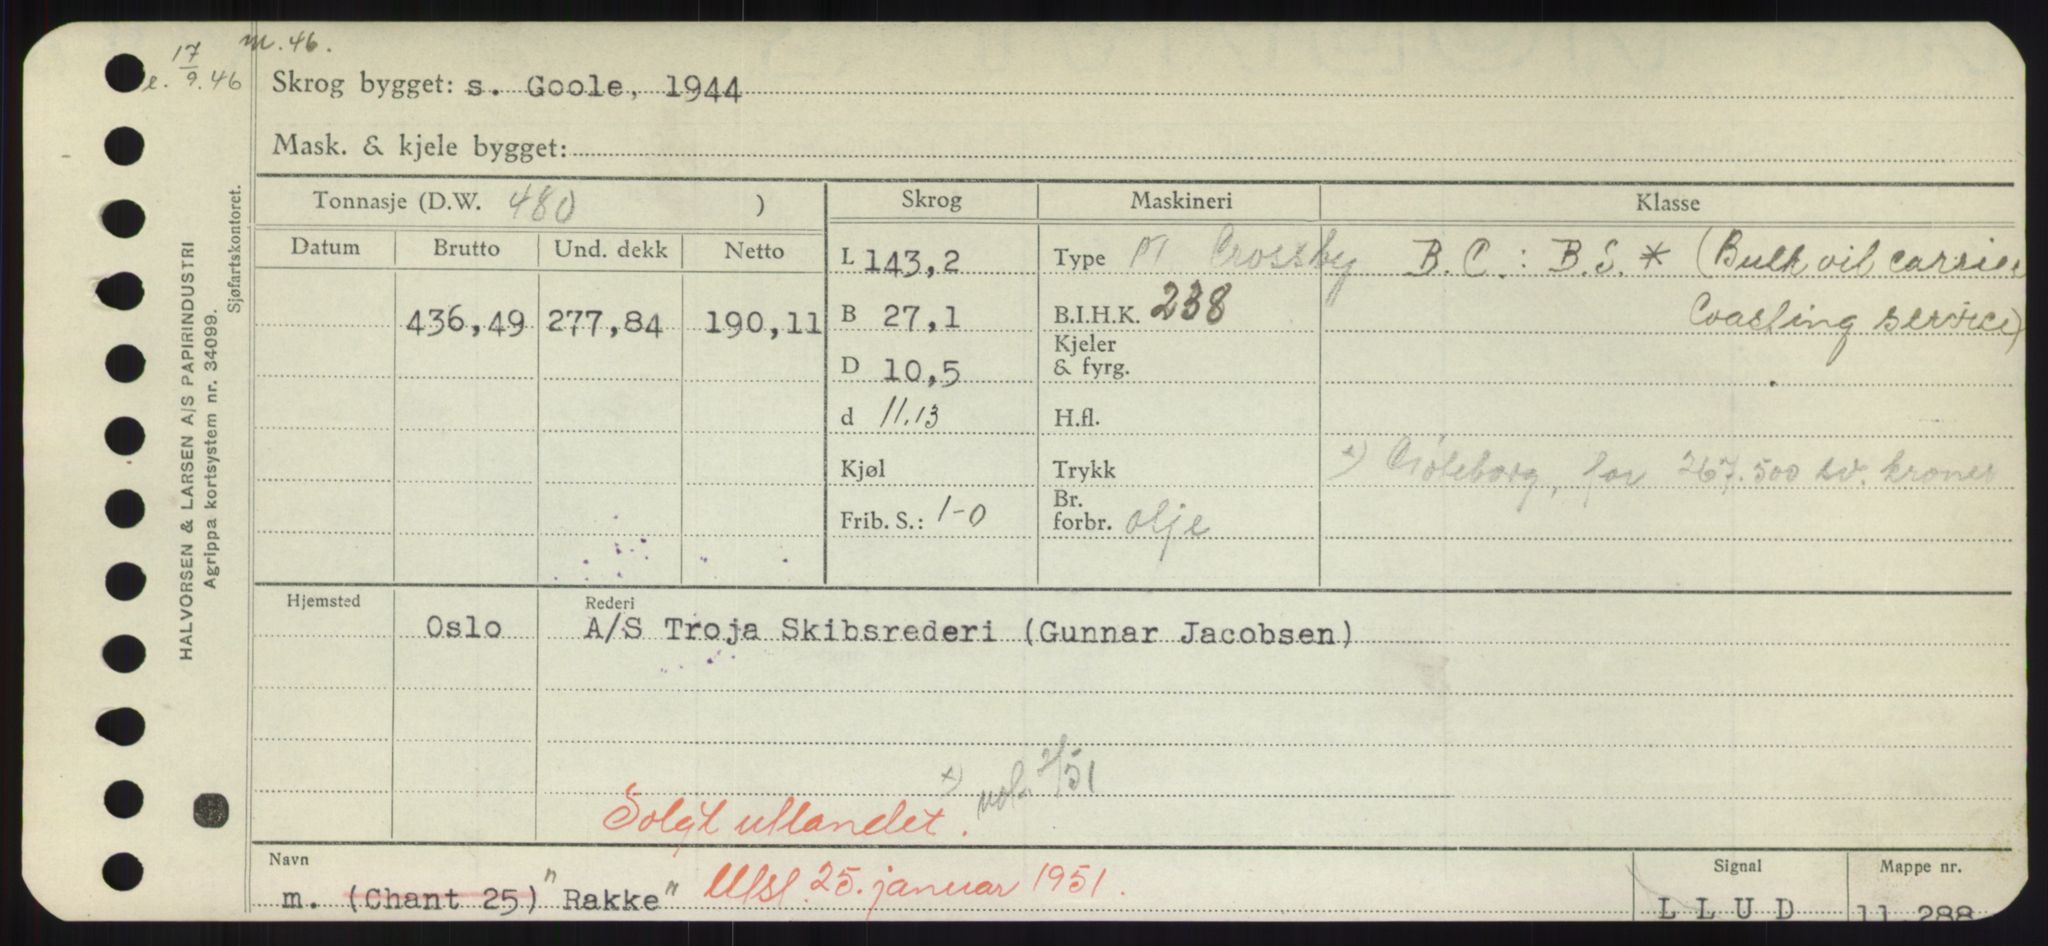 m. 46.
e. 17/9.46
Skrog bygget: s. Goole, 1944
Mask. & kjele bygget:
Tonnasje (D.W. 480 )
Skrog
Maskineri
Klasse
Datum
Brutto
Und. dekk
Netto
436,49
277,84
190,11
L 143,2
B 27,1
D 10,5
d 11.13
Kjøl
Frib. S.: 1-0
Type Crossby
B.I.H.K. 238
Kjeler
& fyrg.
H.fl.
Trykk
Br.
forbr. olje
B.C.: B.S. * (Bulk oil carrier
Coasting service)
x) Göteborg, for 267.500 sv. kroner
Hjemsted
Rederi
Oslo
A/S Troja Skibsrederi (Gunnar Jacobsen)
x)
2/51
Solgt utlandet.
Navn
m. (Chant 25) "Rakke" Utsl. 25. januar 1951.
Signal
L L U D
Mappe nr.
11.288
HALVORSEN & LARSEN A/S PAPIRINDUSTRI
Agrippa kortsystem nr. 34099.
Sjøfartskontoret.